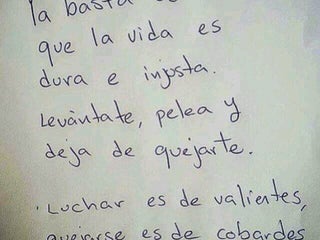 basta
que la vida es
dura e injusta.
Levántate, pelea y
deja de quejarte.
· Luchar es de valientes,
quejarse es de cobardes